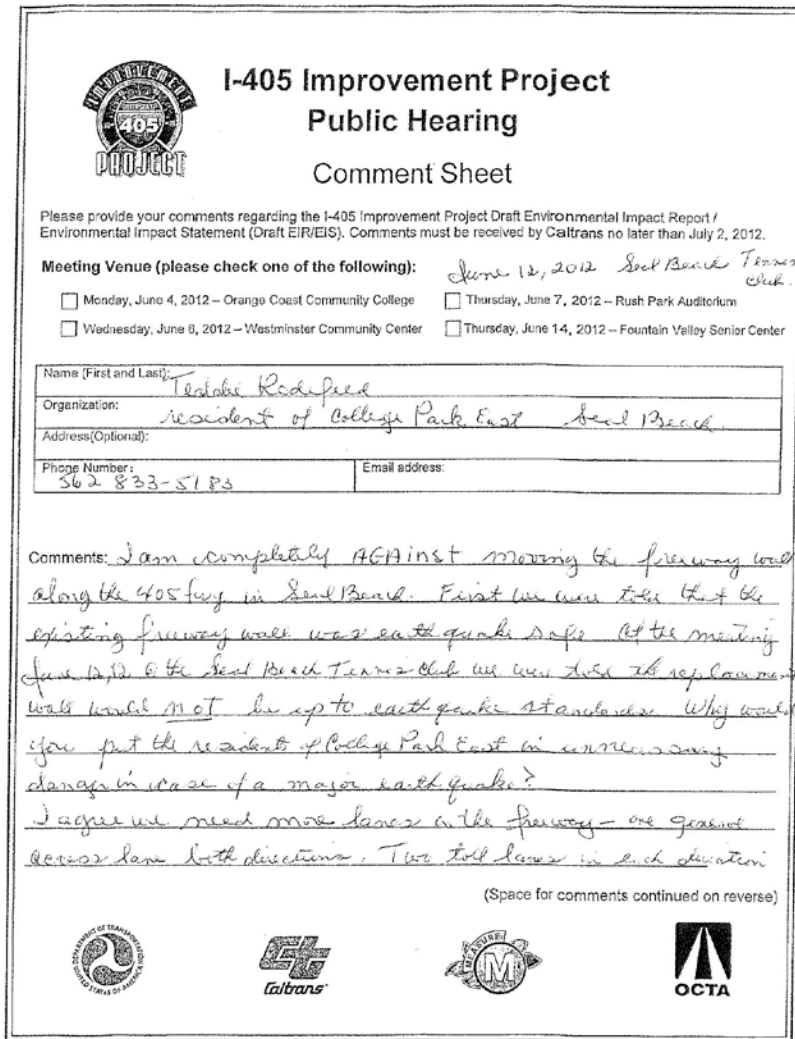 IMPROVEMENT
405
PROJECT
I-405 Improvement Project
Public Hearing
Comment Sheet
Please provide your comments regarding the I-405 Improvement Project Draft Environmental Impact Report /
Environmental Impact Statement (Draft EIR/EIS). Comments must be received by Caltrans no later than July 2, 2012.
Meeting Venue (please check one of the following):
June 12, 2012 Seal Beach Tennis
Club.
Monday, June 4, 2012 – Orange Coast Community College
Thursday, June 7, 2012 – Rush Park Auditorium
Wednesday, June 6, 2012 – Westminster Community Center
Thursday, June 14, 2012 – Fountain Valley Senior Center
Name (First and Last):
Organization: resident of College Park East Seal Beach
Address(Optional):
Phone Number: 562 833-5183
Email address:
Comments: I am completely AGAinst moving the freeway wall
along the 405 fwy in Seal Beach. First we were told that the
existing freeway wall was earthquake safe At the meeting
June 12, 12 @ the Seal Beach Tennis Club we were told the replacement
wall would NOT be up to earthquake standards. Why would
you put the residents of College Park East in
danger in case of a major earthquake?
I agree we need more lanes on the freeway – one general
access lane both directions. Two toll lanes in each
(Space for comments continued on reverse)
DEPARTMENT OF TRANSPORTATION
UNITED STATES OF AMERICA
Caltrans
MEASURE
M
OCTA